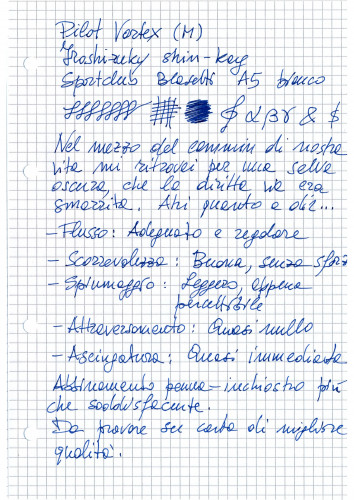 Pilot Vortex (M)
Iroshizuku shin-kay
Sportclub Blasetti A5 bianco
αβγ & $
Nel mezzo del cammin di nostra
vita mi ritrovai per una selva
oscura, che la diritta via era
smarrita. Ahi quanto a dir...
- Flusso: Adeguato e regolare
- Scorrevolezza: Buona, senza sforzi
- Spiumaggio: Leggero, appena
percettibile
- Attraversamento: Quasi nullo
- Asciugatura: Quasi immediata
Abbinamento penna-inchiostro più
che soddisfacente.
Da provare su carta di migliore
qualità.